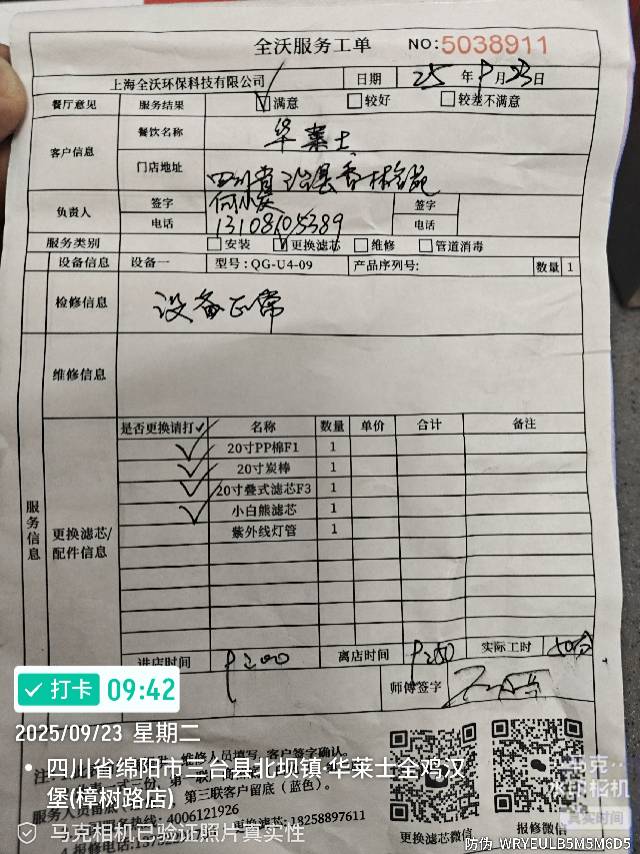 全沃服务工单 NO:5038911
上海全沃环保科技有限公司 日期 25 年 9 月 23 日
餐厅意见 服务结果 ☑满意 □较好 □较差不满意
客户信息 餐饮名称 华莱士
门店地址 四川省三台县
负责人 签字 签字
电话 13108105389 电话
服务类别 □安装 ☑更换滤芯 □维修 □管道消毒
设备信息 设备一 型号:QG-U4-09 产品序列号: 数量 1
检修信息 设备正常
维修信息
服务信息
更换滤芯/配件信息
是否更换请打✓ 名称 数量 单价 合计 备注
✓ 20寸PP棉F1 1
✓ 20寸炭棒 1
✓ 20寸叠式滤芯F3 1
✓ 小白熊滤芯 1
紫外线灯管 1
进店时间 9:00 离店时间 9:50 实际工时 50分
师傅签字
维修人员填写,客户签字确认。
第三联客户留底(蓝色)。
服务热线:4006121926
更换滤芯:18258897611
更换滤芯微信 报修微信
打卡 09:42
2025/09/23 星期二
四川省绵阳市三台县北坝镇·华莱士全鸡汉
堡(樟树路店)
马克相机已验证照片真实性
马克
水印相机
真实时间
防伪 WRYEULB5M5M6D5